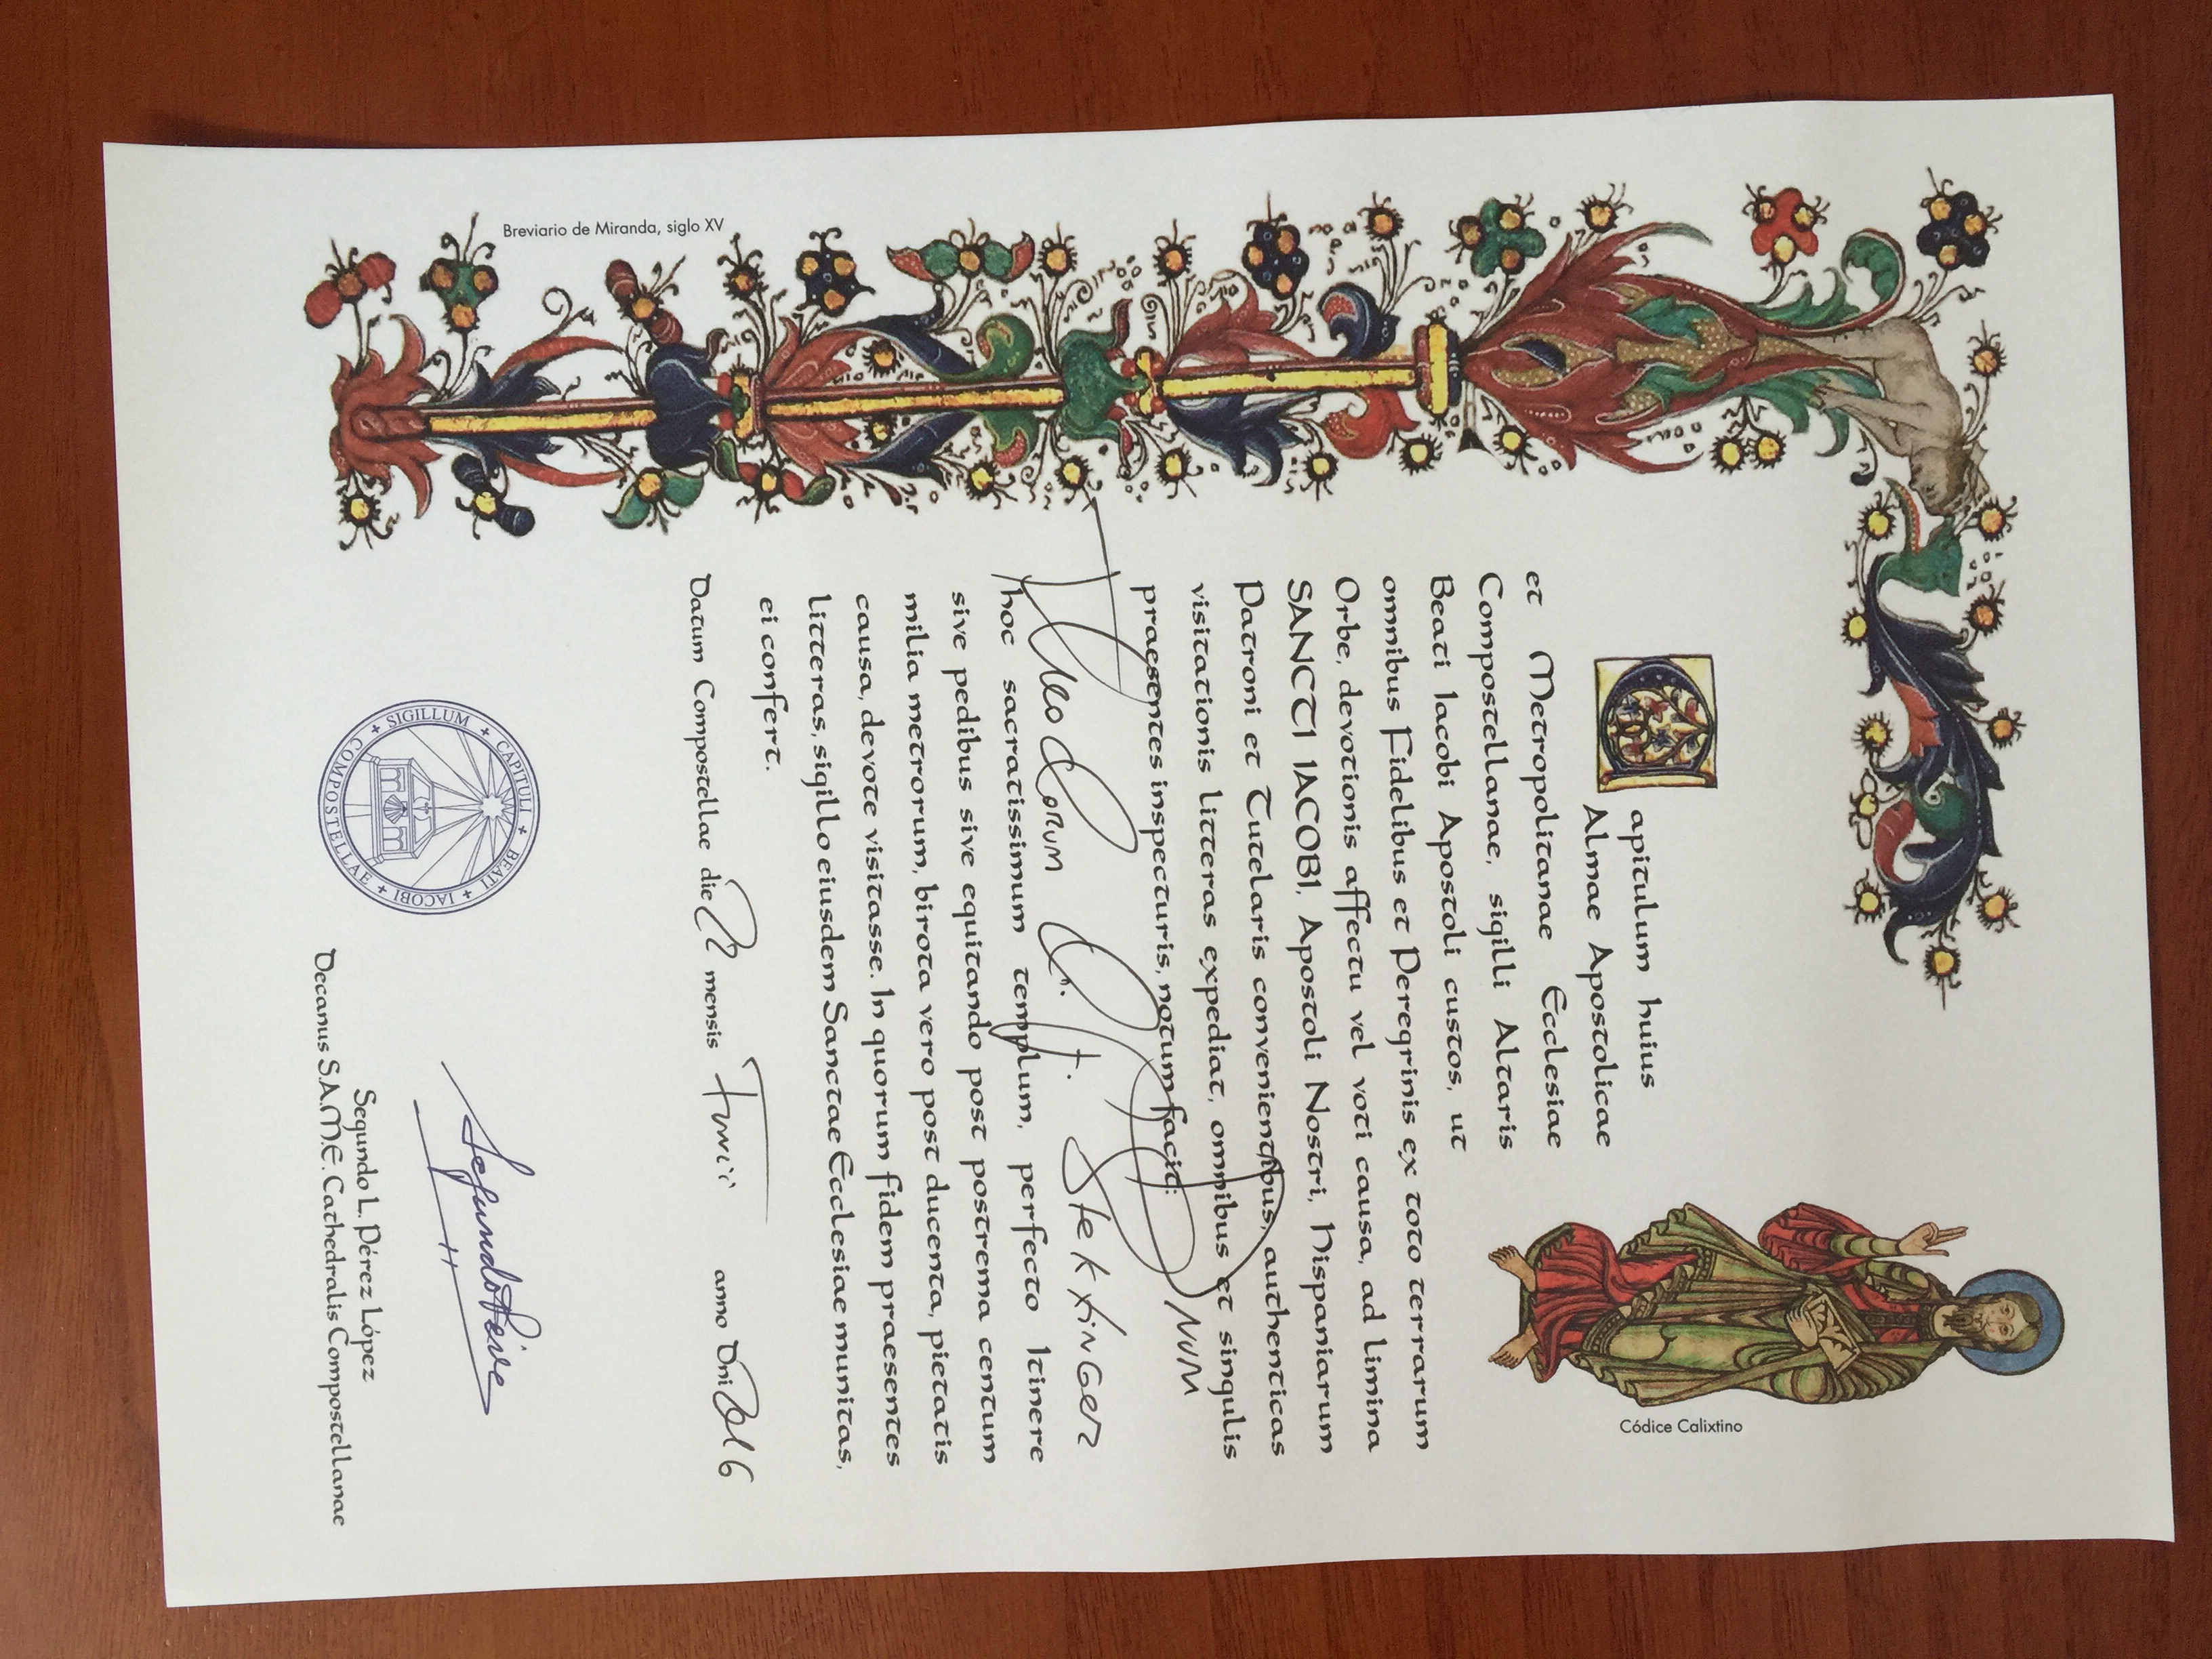 Breviario de Miranda, siglo XV
Códice Calixtino
Capitulum huius
Almae Apostolicae
et Metropolitanae Ecclesiae
Compostellanae, sigilli Altaris
Beati Iacobi Apostoli custos, ut
omnibus Fidelibus et Peregrinis ex toto terrarum
Orbe, devotionis affectu vel voti causa, ad limina
SANCTI IACOBI, Apostoli Nostri, Hispaniarum
Patroni et Tutelaris convenientibus, authenticas
visitationis litteras expediat, omnibus et singulis
praesentes inspecturis, notum facit:
num
hoc sacratissimum templum, perfecto Itinere
sive pedibus sive equitando post postrema centum
milia metrorum, birota vero post ducenta, pietatis
causa, devote visitasse. In quorum fidem praesentes
litteras, sigillo eiusdem Sanctae Ecclesiae munitas,
ei confert.
Datum Compostellae die mensis anno Dni 2016
SIGILLUM + CAPITULI + BEATI + IACOBI + COMPOSTELLAE +
Segundo L. Pérez López
Decanus S.A.M.E. Cathedralis Compostellanae